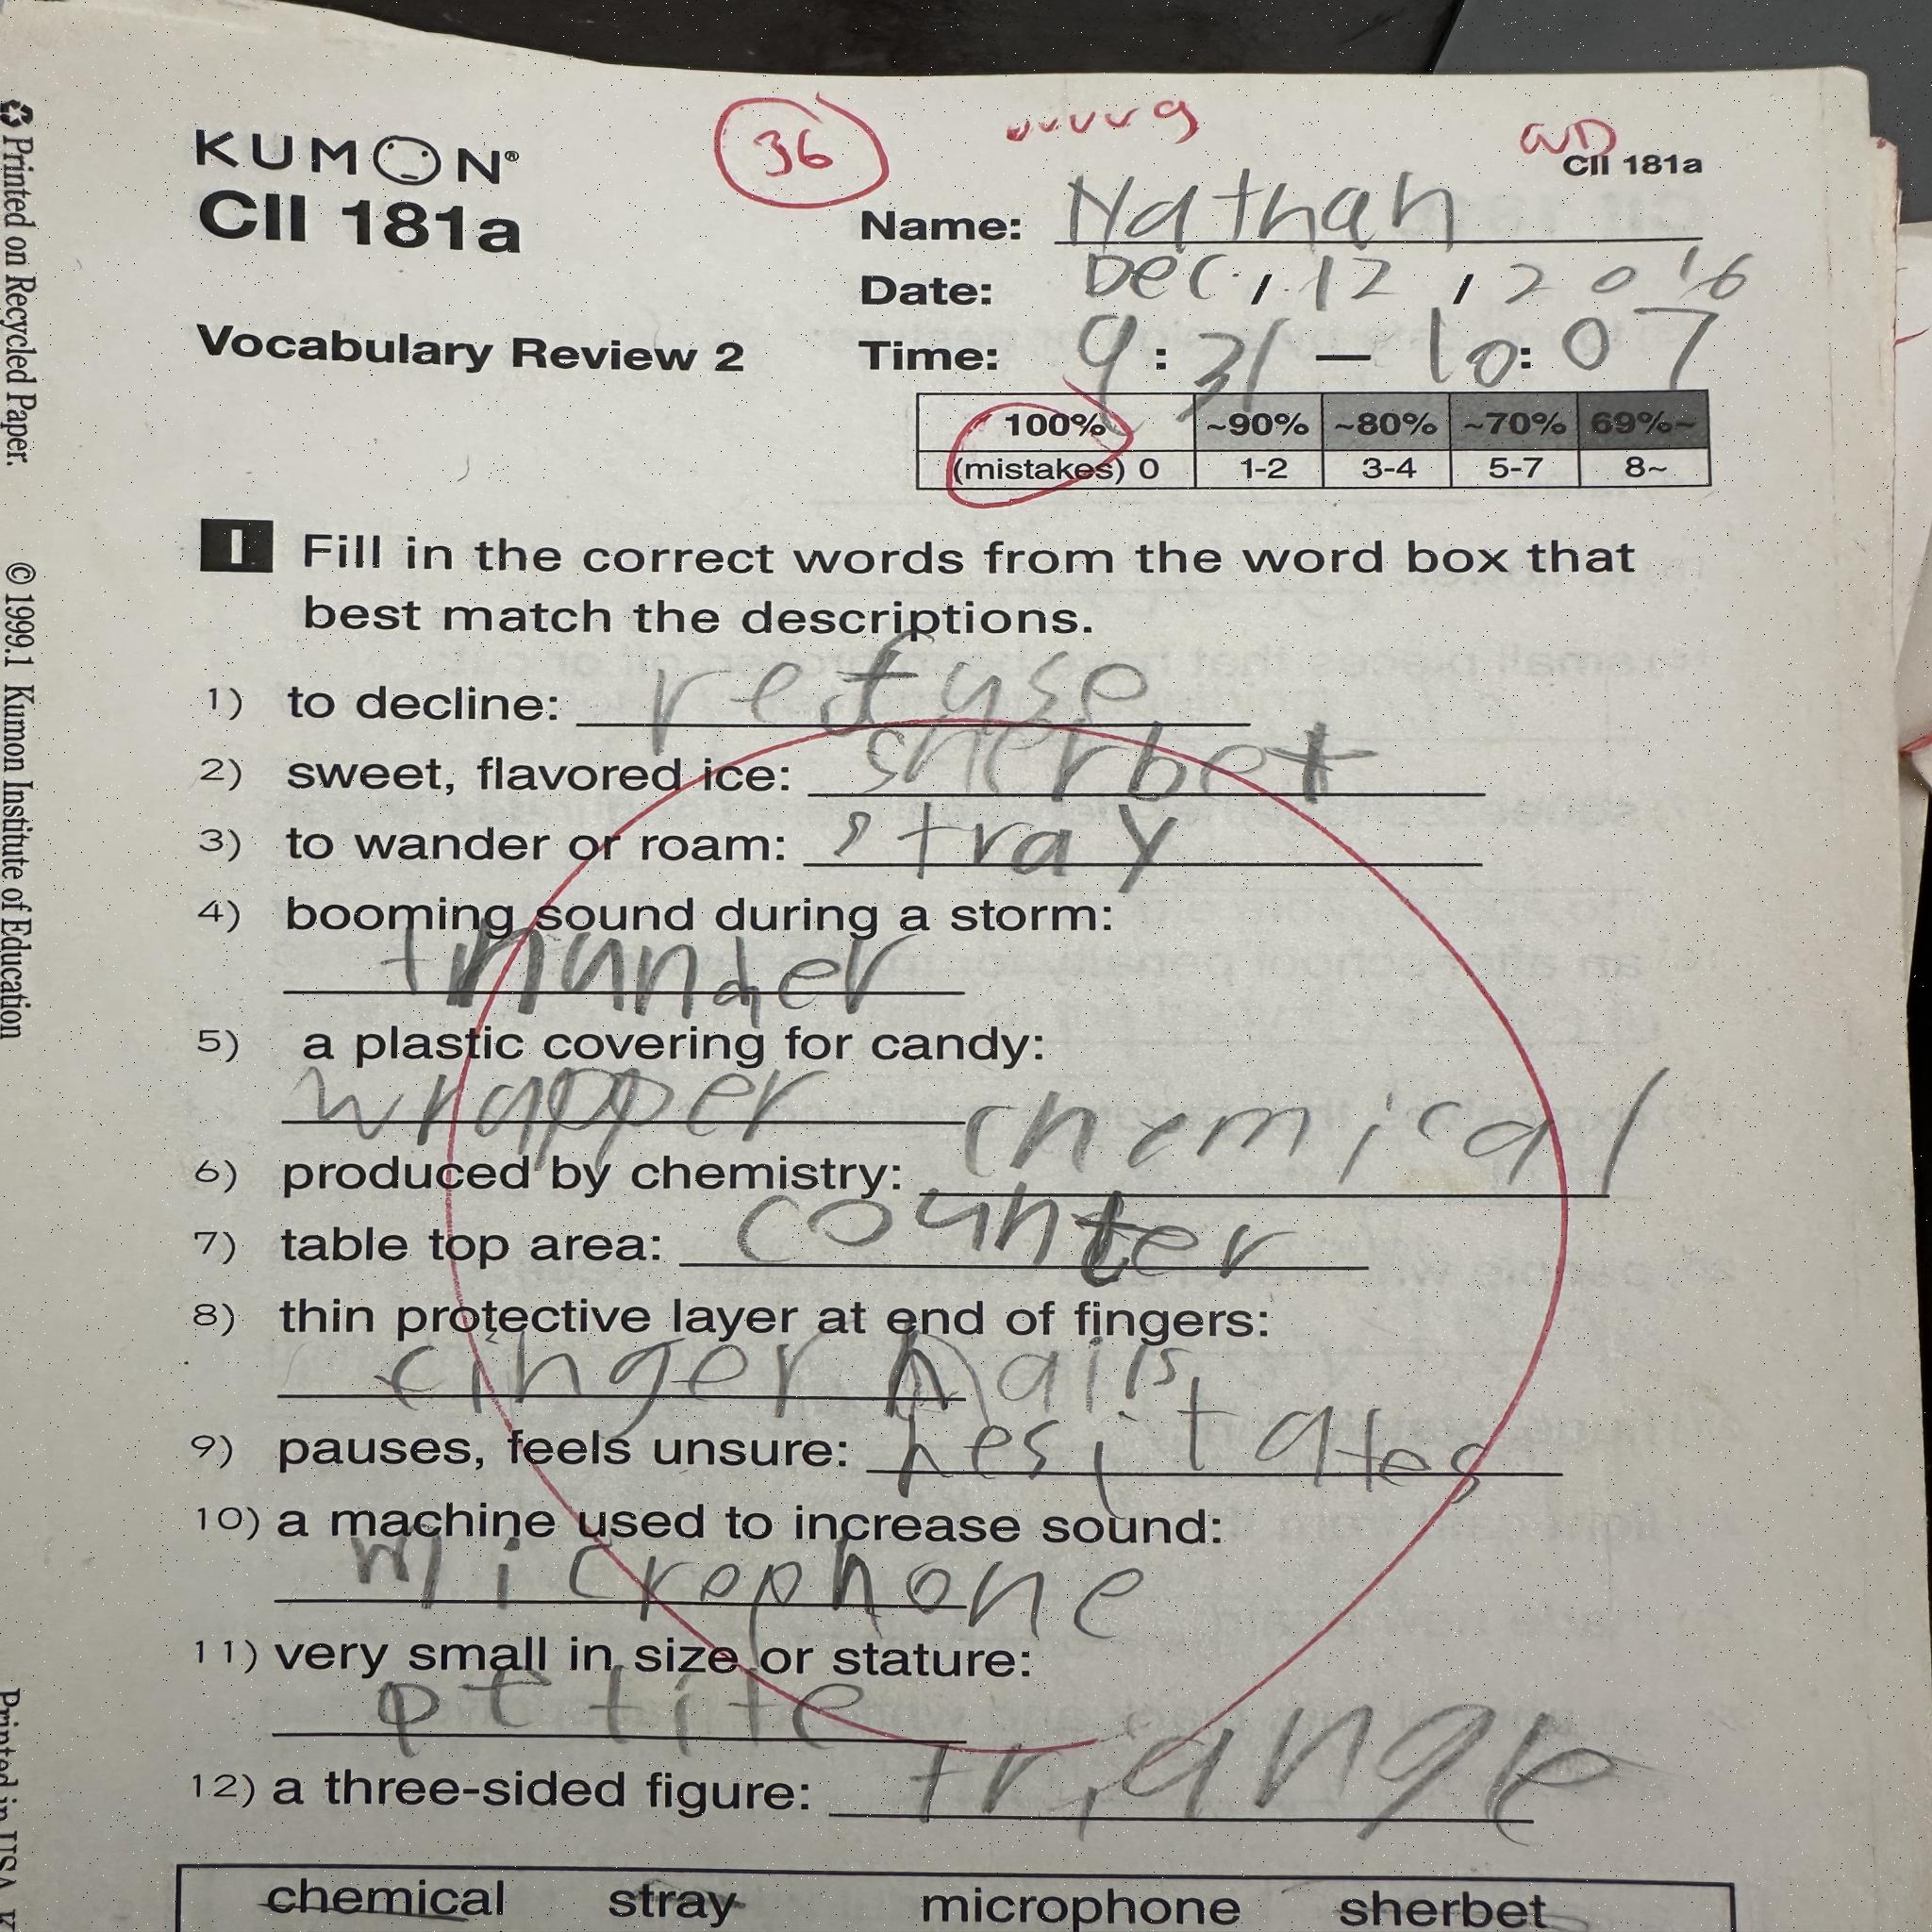 KUMON®
36
CII 181a
CII 181a
Name: Nathan
Date: Dec., 12, 2016
Vocabulary Review 2
Time: 9:31 — 10:07
100% ~90% ~80% ~70% 69%~
(mistakes) 0 1-2 3-4 5-7 8~
1 Fill in the correct words from the word box that
best match the descriptions.
1) to decline: refuse
2) sweet, flavored ice: sherbet
3) to wander or roam: stray
4) booming sound during a storm:
thunder
5) a plastic covering for candy:
wrapper
6) produced by chemistry: chemical
7) table top area: counter
8) thin protective layer at end of fingers:
finger nails
9) pauses, feels unsure: hesitates
10) a machine used to increase sound:
microphone
11) very small in size or stature:
petite
12) a three-sided figure: triangle
chemical stray microphone sherbet
Printed on Recycled Paper.
© 1999.1 Kumon Institute of Education
Printed in USA